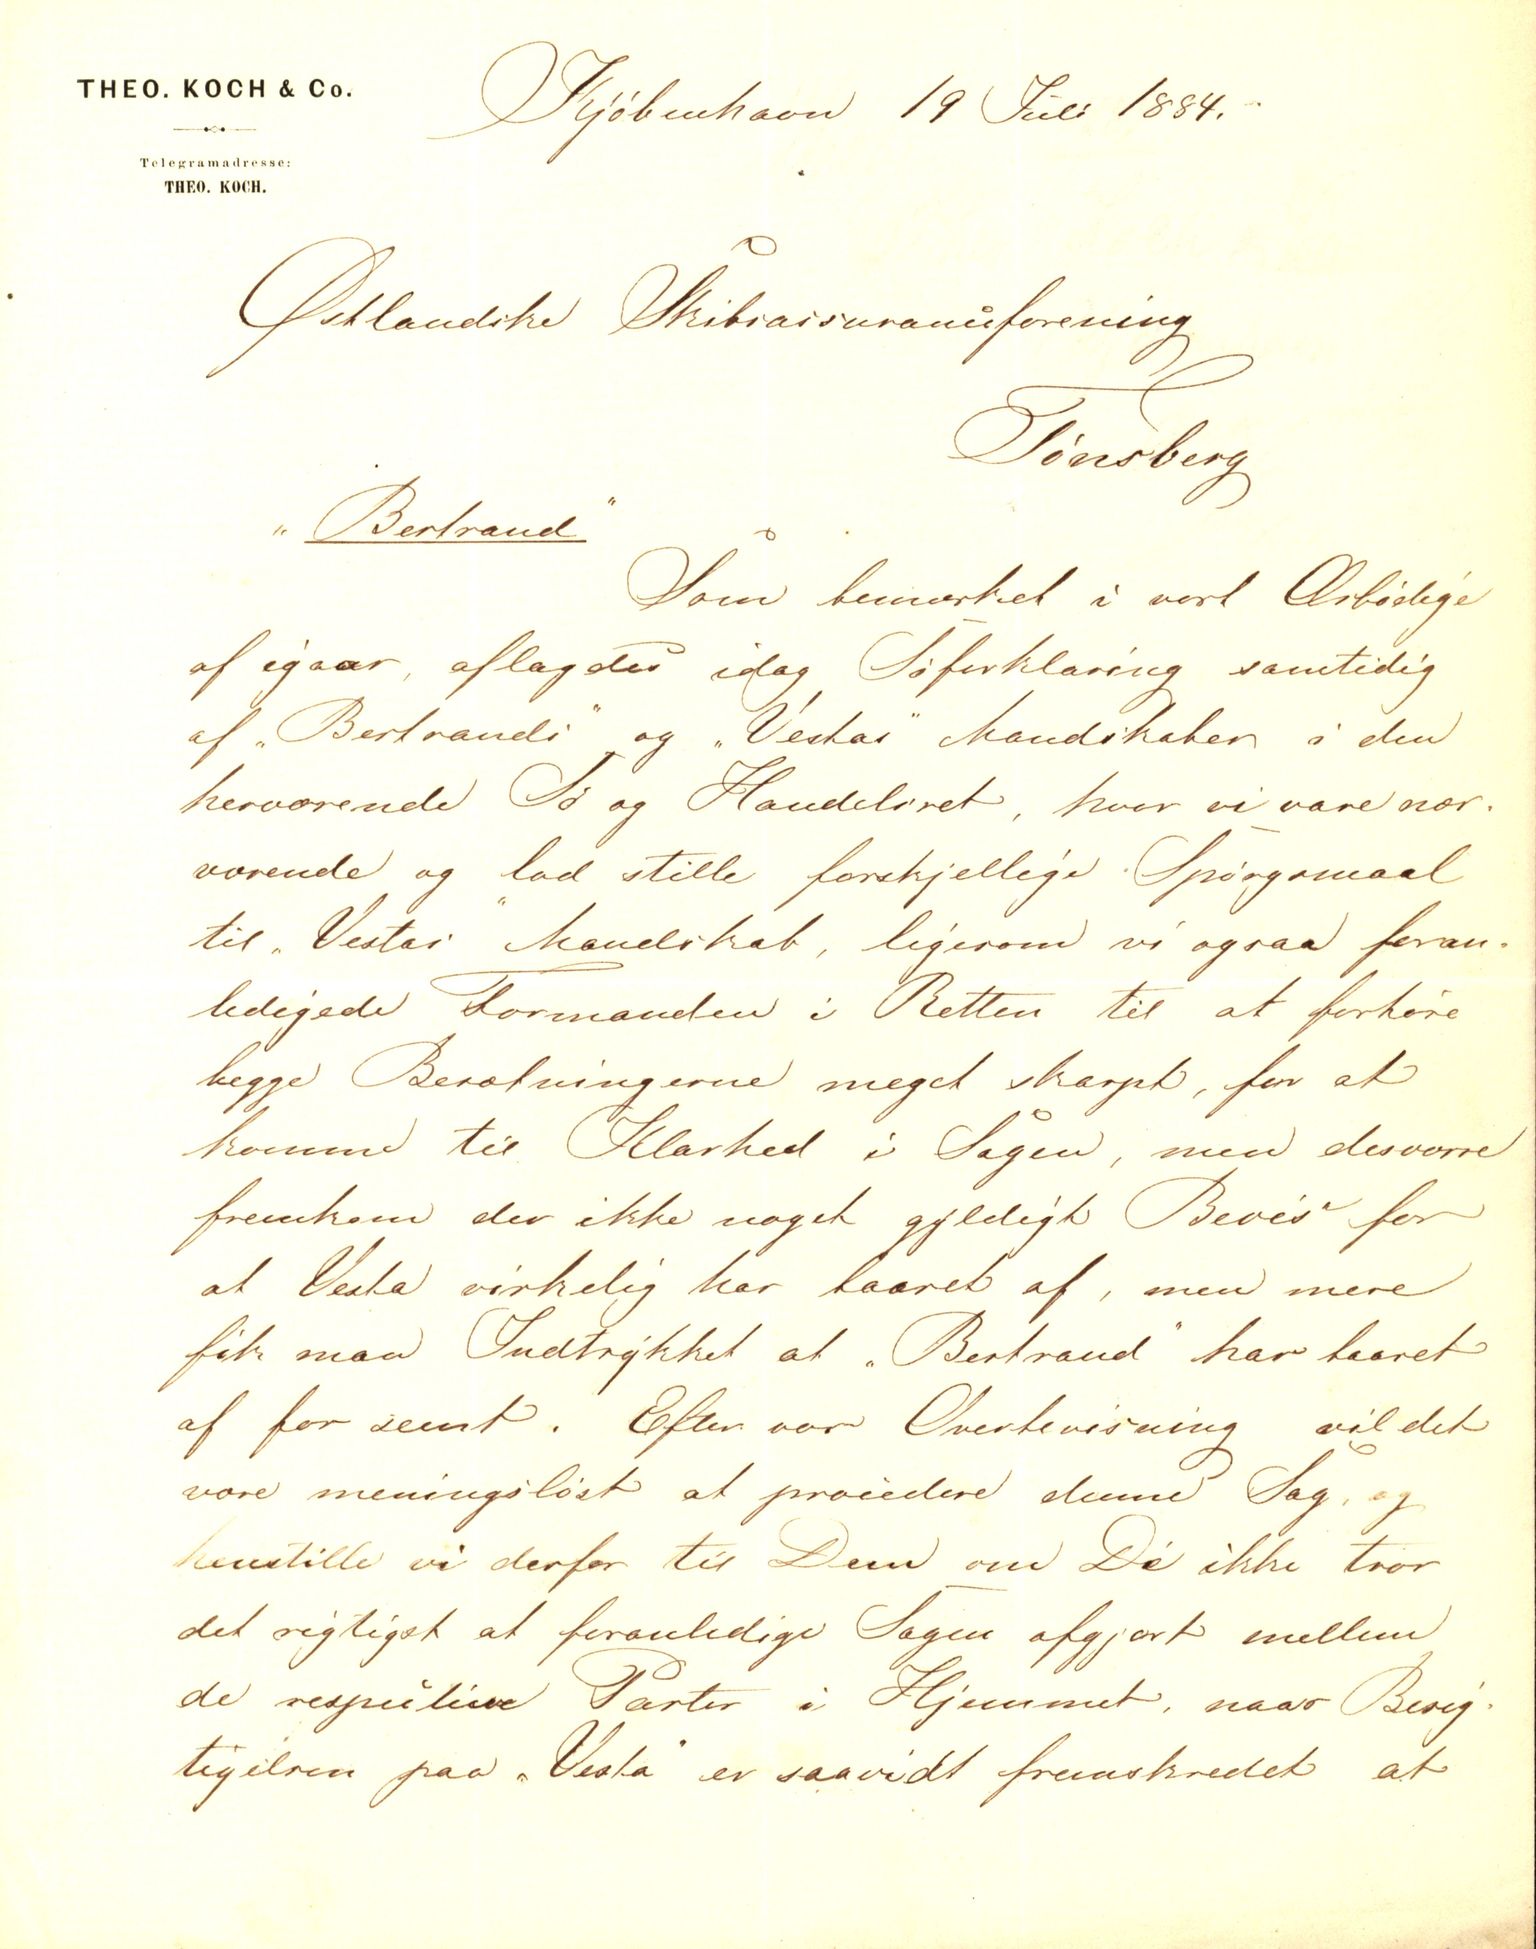 THEO. KOCH & Co.
Telegramadresse:
THEO. KOCH.
Kjöbenhavn 19 Juli 1884.
Østlandske Skibsassuranceforening
Tönsberg
"Bertrand"
Som bemærket i vort Ærbödige
af igaar, aflagdes idag Söforklaring samtidig
af „Bertrands" og „Vestas" Mandskaber i den
herværende Sö og Handelsret, hvor vi vare nær-
værende og lod stille forskjellige Spörgsmaal
til „Vestas" Mandskab, ligesom vi ogsaa foran-
ledigede Formanden i Retten til at forhöre
begge Besætningerne meget skarpt, for at
komme til Klarhed i Sagen, men desværre
fremkom der ikke noget gyldigt Bevis for
at Vesta virkelig har luaret af, men mere
fik man Indtrykket at „Bertrand" har luaret
af for seent. Efter vor Overbevisning vil det
være meningslöst at procedere denne Sag, og
henstille vi derfor til Dem om De ikke tror
det rigtigst at foranledige Sagen afgjort mellem
de respective Parter i Hjemmet, naar Besig-
tigelsen paa „Vesta" er saavidt fremskredet at